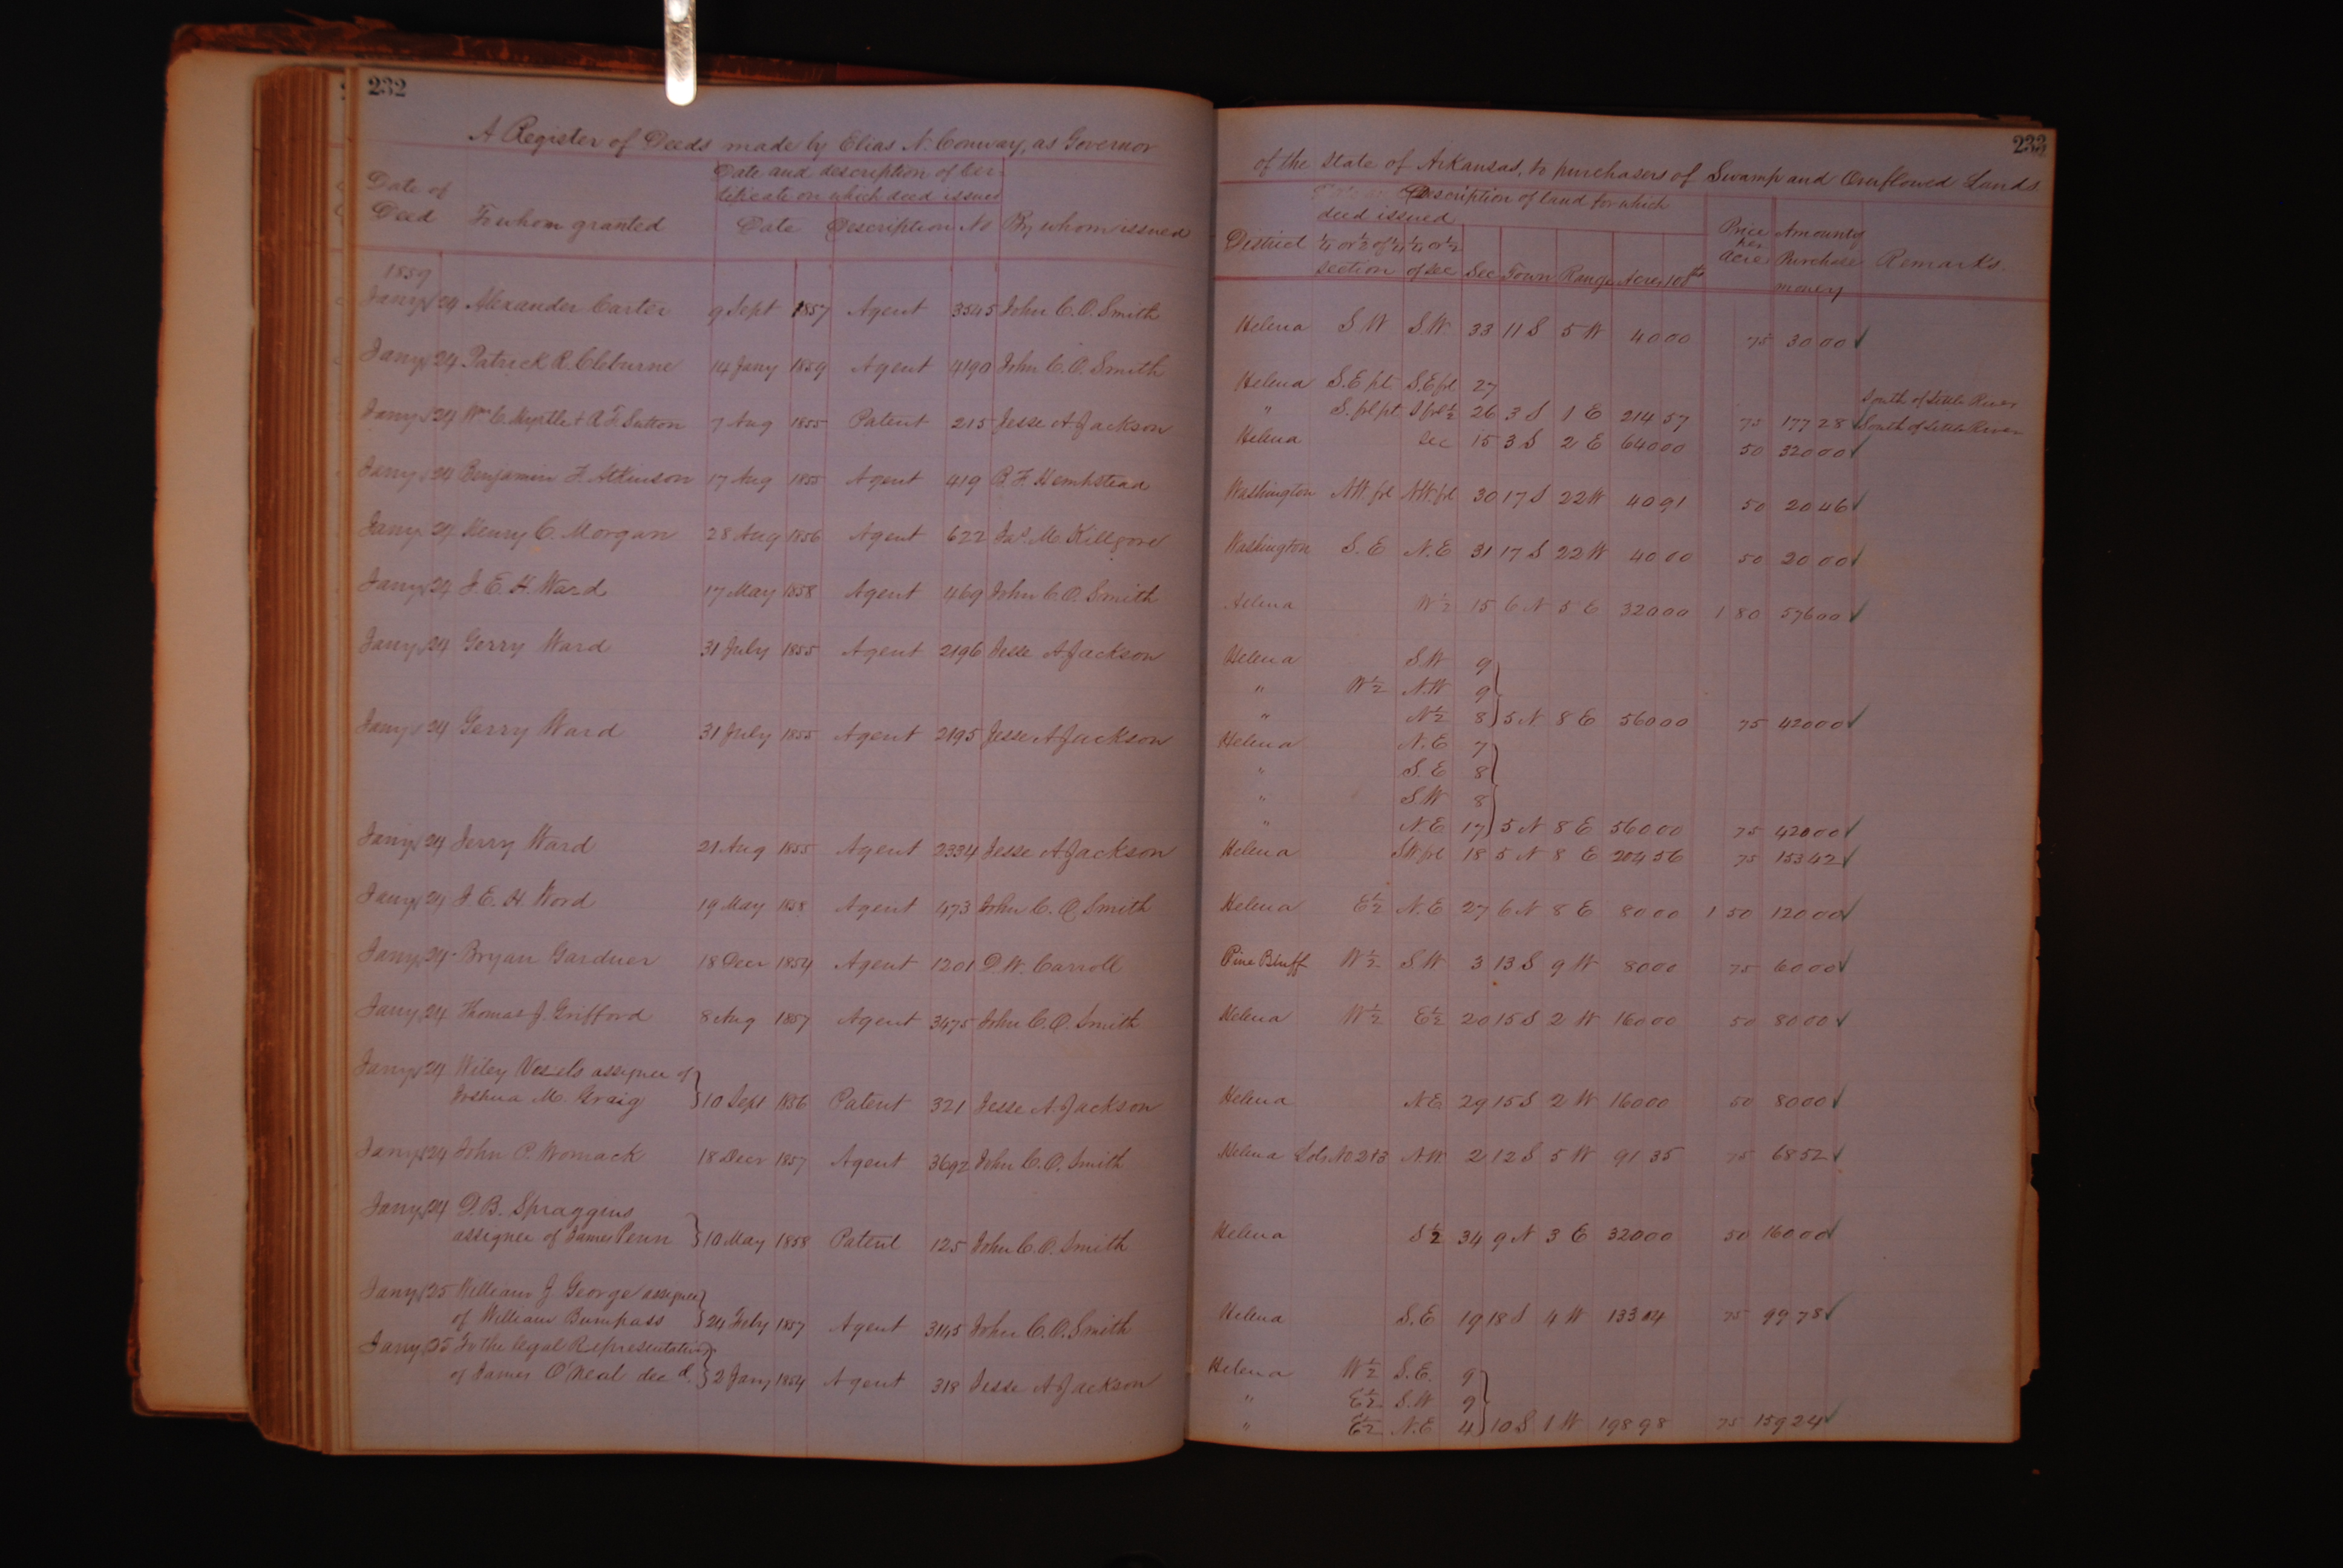 232
A Register of Deeds made by Elias N. Conway, as Governor
Date of Deed To whom granted Date and description of Cer-
tificate on which deed issued
Date Description No By whom issued
1859
Jany 24 Alexander Carter 9 Sept 1857 Agent 3545 John C. O. Smith
Jany 24 Patrick R. Cleburne 14 Jany 1859 Agent 4190 John C. O. Smith
Jany 24 Wm C. Myrtle & A. F. Sutton 7 Aug 1855 Patent 215 Jesse A Jackson
Jany 24 Benjamin F. Atkinson 17 Aug 1855 Agent 419 B. F. Hempstead
Jany 24 Henry C. Morgan 28 Aug 1856 Agent 622 Jas. M. Killgore
Jany 24 J. E. H. Ward 17 May 1858 Agent 469 John C. O. Smith
Jany 24 Gerry Ward 31 July 1855 Agent 2196 Jesse A Jackson
Jany 24 Gerry Ward 31 July 1855 Agent 2195 Jesse A Jackson
Jany 24 Jerry Ward 21 Aug 1855 Agent 2334 Jesse A Jackson
Jany 24 J. E. H. Word 19 May 1858 Agent 473 John C. O Smith
Jany 24 Bryan Gardner 18 Decr 1854 Agent 1201 D. W. Carroll
Jany 24 Thomas J. Grifford 8 Aug 1857 Agent 3475 John C. O. Smith
Jany 24 Wiley Vessels assignee of
Joshua M. Craig 10 Sept 1856 Patent 321 Jesse A Jackson
Jany 24 John P. Womack 18 Decr 1857 Agent 3692 John C. O. Smith
Jany 24 D. B. Spraggins
assignee of James Penn 10 May 1858 Patent 125 John C. O. Smith
Jany 25 William J George assignee
of William Bumpass 24 Feby 1857 Agent 3145 John C. O. Smith
Jany 25 To the legal Representatives
of James O'Neal decd. 2 Jany 1854 Agent 318 Jesse A Jackson
233
of the State of Arkansas, to purchasers of Swamp and Overflowed Lands
Description of land for which
deed issued
District ¼ or ½ of ¼ section ¼ or ½ of sec Sec Town Range Acres 100ths Price per acre Amount of Purchase money Remarks.
Helena S W S. W. 33 11 S 5 W 40 00 75 30 00 ✓
Helena S. E pt S. E frl 27 South of Little River
" S. frl pt S frl ½ 26 3 S 1 E 214 57 75 177 28 ✓ South of Little River
Helena Sec 15 3 S 2 E 640 00 50 320 00 ✓
Washington N W frl N W frl 30 17 S 22 W 40 91 50 20 46 ✓
Washington S. E N. E 31 17 S 22 W 40 00 50 20 00 ✓
Helena W ½ 15 6 N 5 E 320 00 1 80 576 00 ✓
Helena S. W 9
" W ½ N. W 9
" N ½ 8 5 N 8 E 560 00 75 420 00 ✓
Helena N. E 7
" S. E 8
" S. W 8
" N. E 17 5 N 8 E 560 00 75 420 00 ✓
Helena S W frl 18 5 N 8 E 204 56 75 153 42 ✓
Helena E ½ N. E 27 6 N 8 E 80 00 1 50 120 00 ✓
Pine Bluff W ½ S. W 3 13 S 9 W 80 00 75 60 00 ✓
Helena W ½ E ½ 20 15 S 2 W 160 00 50 80 00 ✓
Helena N E 29 15 S 2 W 160 00 50 80 00 ✓
Helena Lots No 2 & 3 N. W. 2 12 S 5 W 91 35 75 68 52 ✓
Helena S ½ 34 9 N 3 E 320 00 50 160 00 ✓
Helena S. E 19 18 S 4 W 133 04 75 99 78 ✓
Helena W ½ S. E. 9
" E ½ S. W 9
" E ½ N. E 4 10 S 1 W 198 98 75 159 24 ✓